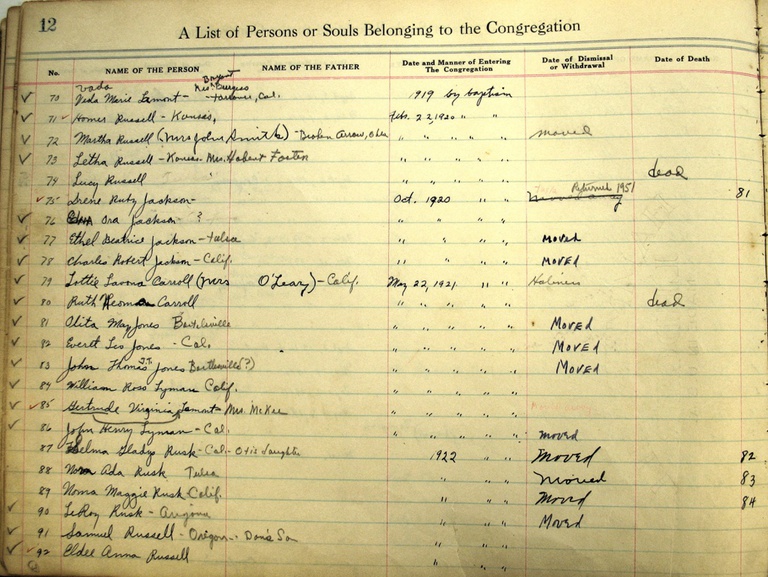 12
A List of Persons or Souls Belonging to the Congregation
No. NAME OF THE PERSON NAME OF THE FATHER Date and Manner of Entering The Congregation Date of Dismissal or Withdrawal Date of Death
Vada Bryant
70 Veda Marie Lamont - Mrs. Burgess Torrance, Cal. 1919 by baptism
71 Homer Russell - Kansas, Feb. 22, 1920 " "
72 Martha Russell (Mrs John Smith) - Broken Arrow, Okla " " " " moved
73 Letha Russell - Kansas. Mrs. Hobert Foster " " " "
74 Lucy Russell " " " " dead
Returned 1951
75 Irene Ruty Jackson - Oct. 1920 " " Moved away 81
76 Ora Jackson - ? " " " "
77 Ethel Beatrice Jackson - Tulsa " " " " Moved
78 Charles Robert Jackson - Calif. " " " " Moved
79 Lottie Lavona Carroll (Mrs O'Leary) - Calif. May 22, 1921 " " Holiness
80 Ruth Neoma Carroll " " " " dead
81 Olita May Jones Bartlesville " " " " Moved
82 Everet Leo Jones - Cal. " " " " Moved
J.T.
83 John Thomas Jones Bartlesville (?) " " " " Moved
84 William Ross Lyman Calif. " " " "
85 Gertrude Virginia Lamont - Mrs. McKee " " " "
86 John Henry Lyman - Cal. " " " " moved
87 Thelma Gladys Rusk - Cal - Otis daughter 1922 " " Moved 82
88 Nora Ada Rusk Tulsa " " " moved 83
89 Norma Maggie Rusk - Calif. " " " Moved 84
90 LeRoy Rusk - Arizona " " " Moved
91 Samuel Russell - Oregon - Dan's Son " " "
92 Eldee Anna Russell " " "